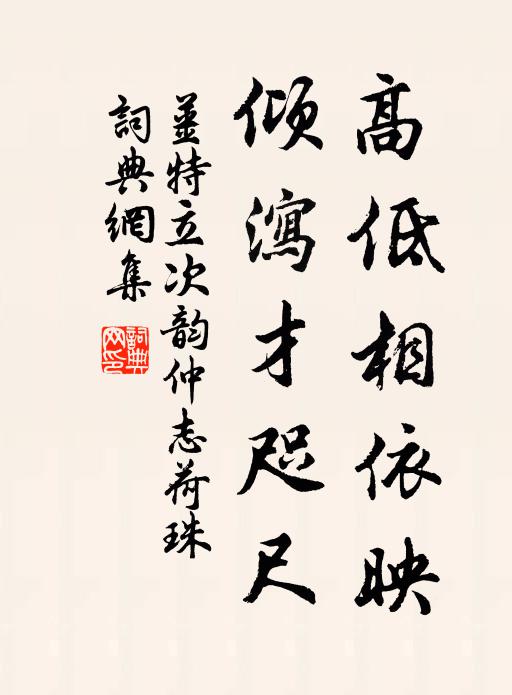 高低相依映
傾瀉才咫尺
薑特立次韵仲志荷珠
詞典網集
詞典網印